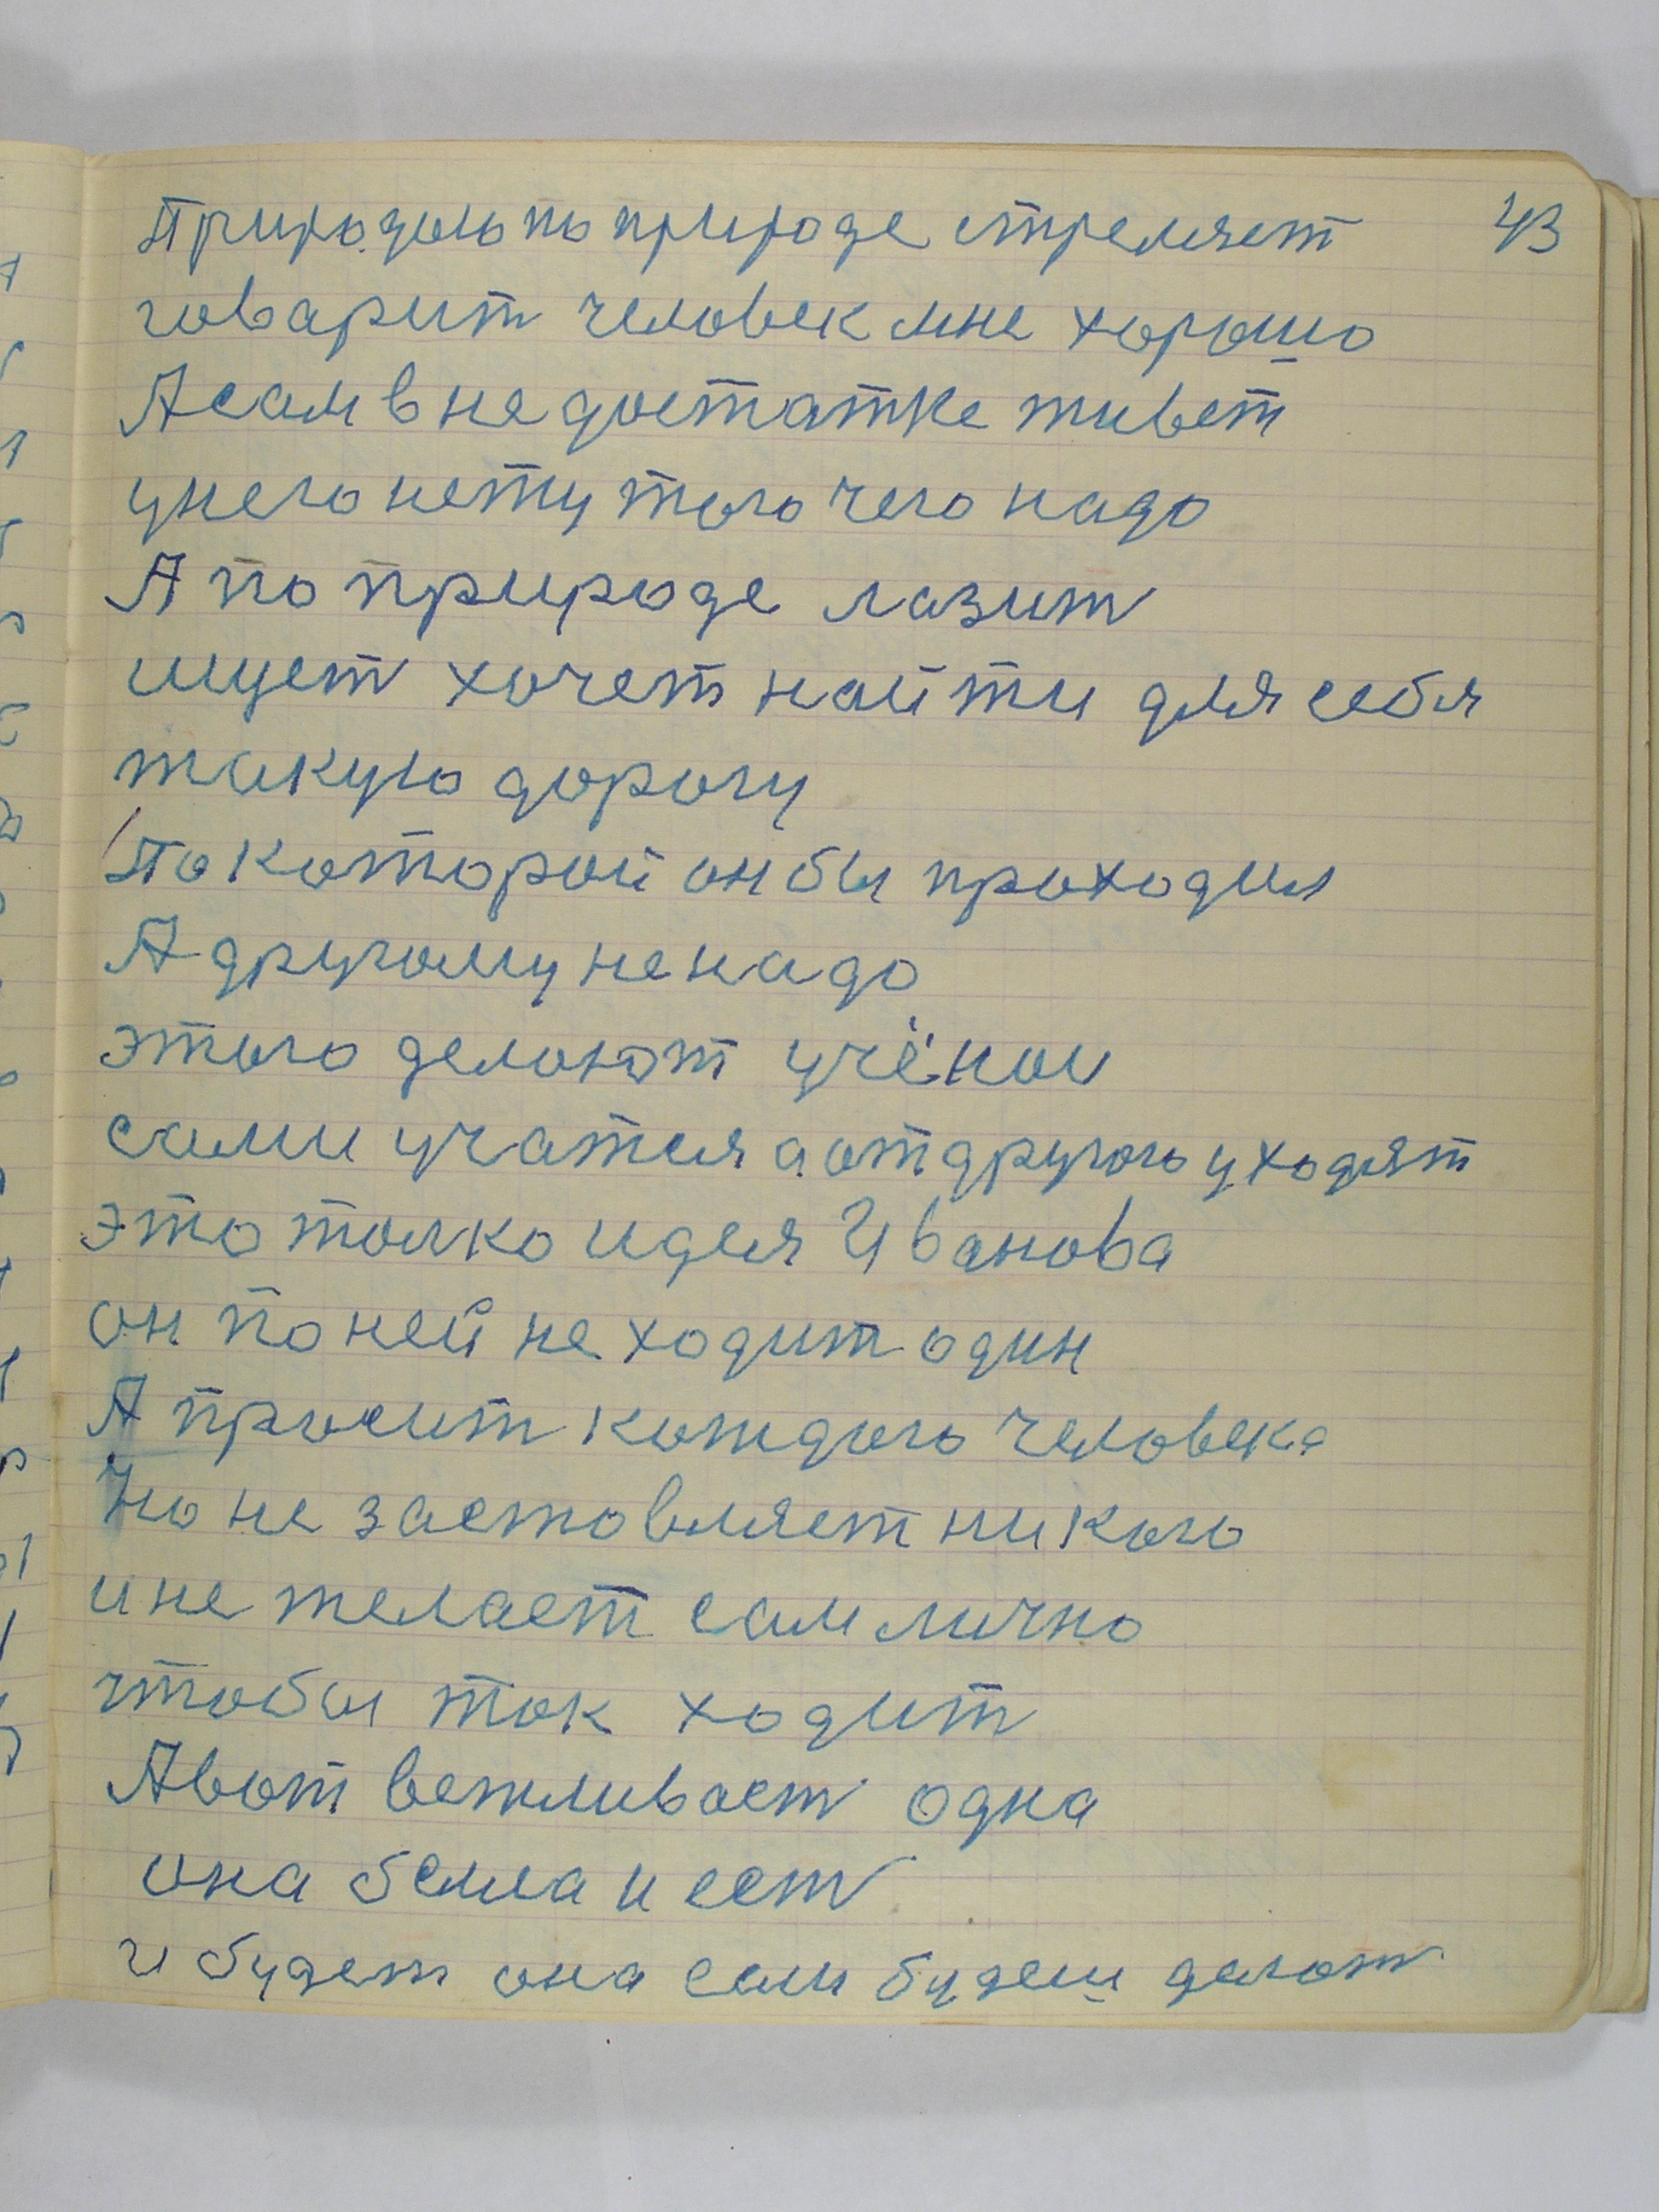 Природою по природе стреляет 43
говарит человек мне хорошо
А сам в недостатке живет
у него нету того чего надо
А по природе лазит
ищет хочет найти для себя
такую дорогу
По которой он бы проходил
А другому не надо
этого делоют учёнои
сами учатся а от другого уходят
это толко идея Иванова
он по ней не ходит один
А просит кождого человека
Но не застовляет никого
и не желает сам лично
чтобы ток ходит
А вот вежливаст одна
она белла и ест
и будет она если будеш делот